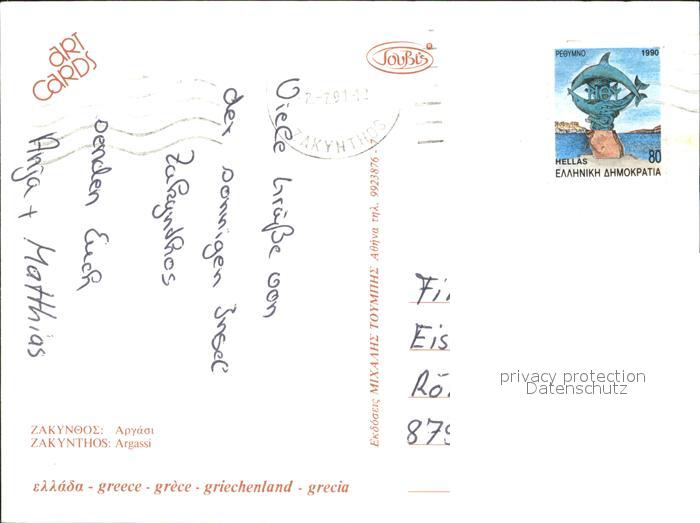 ART
CARDS
Viele Grüße von
der sonnigen Insel
Zakynthos
senden Euch
Anja + Matthias
ΖΑΚΥΝΘΟΣ: Αργάσι
ZAKYNTHOS: Argassi
ελλάδα - greece - grèce - griechenland - grecia
Εκδόσεις ΜΙΧΑΛΗΣ ΤΟΥΜΠΗΣ Αθήνα τηλ. 9923876
ZAKYNTHOS
ΡΕΘΥΜΝΟ 1990
HELLAS 80
ΕΛΛΗΝΙΚΗ ΔΗΜΟΚΡΑΤΙΑ
Eis
879
privacy protection
Datenschutz